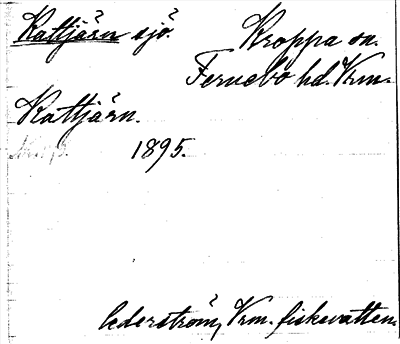 Kattjärn sjö. Kroppa sn.
Fernebo hd. Vrm.
Kattjärn.
1895.
Cederström, Vrm. fiskevatten.